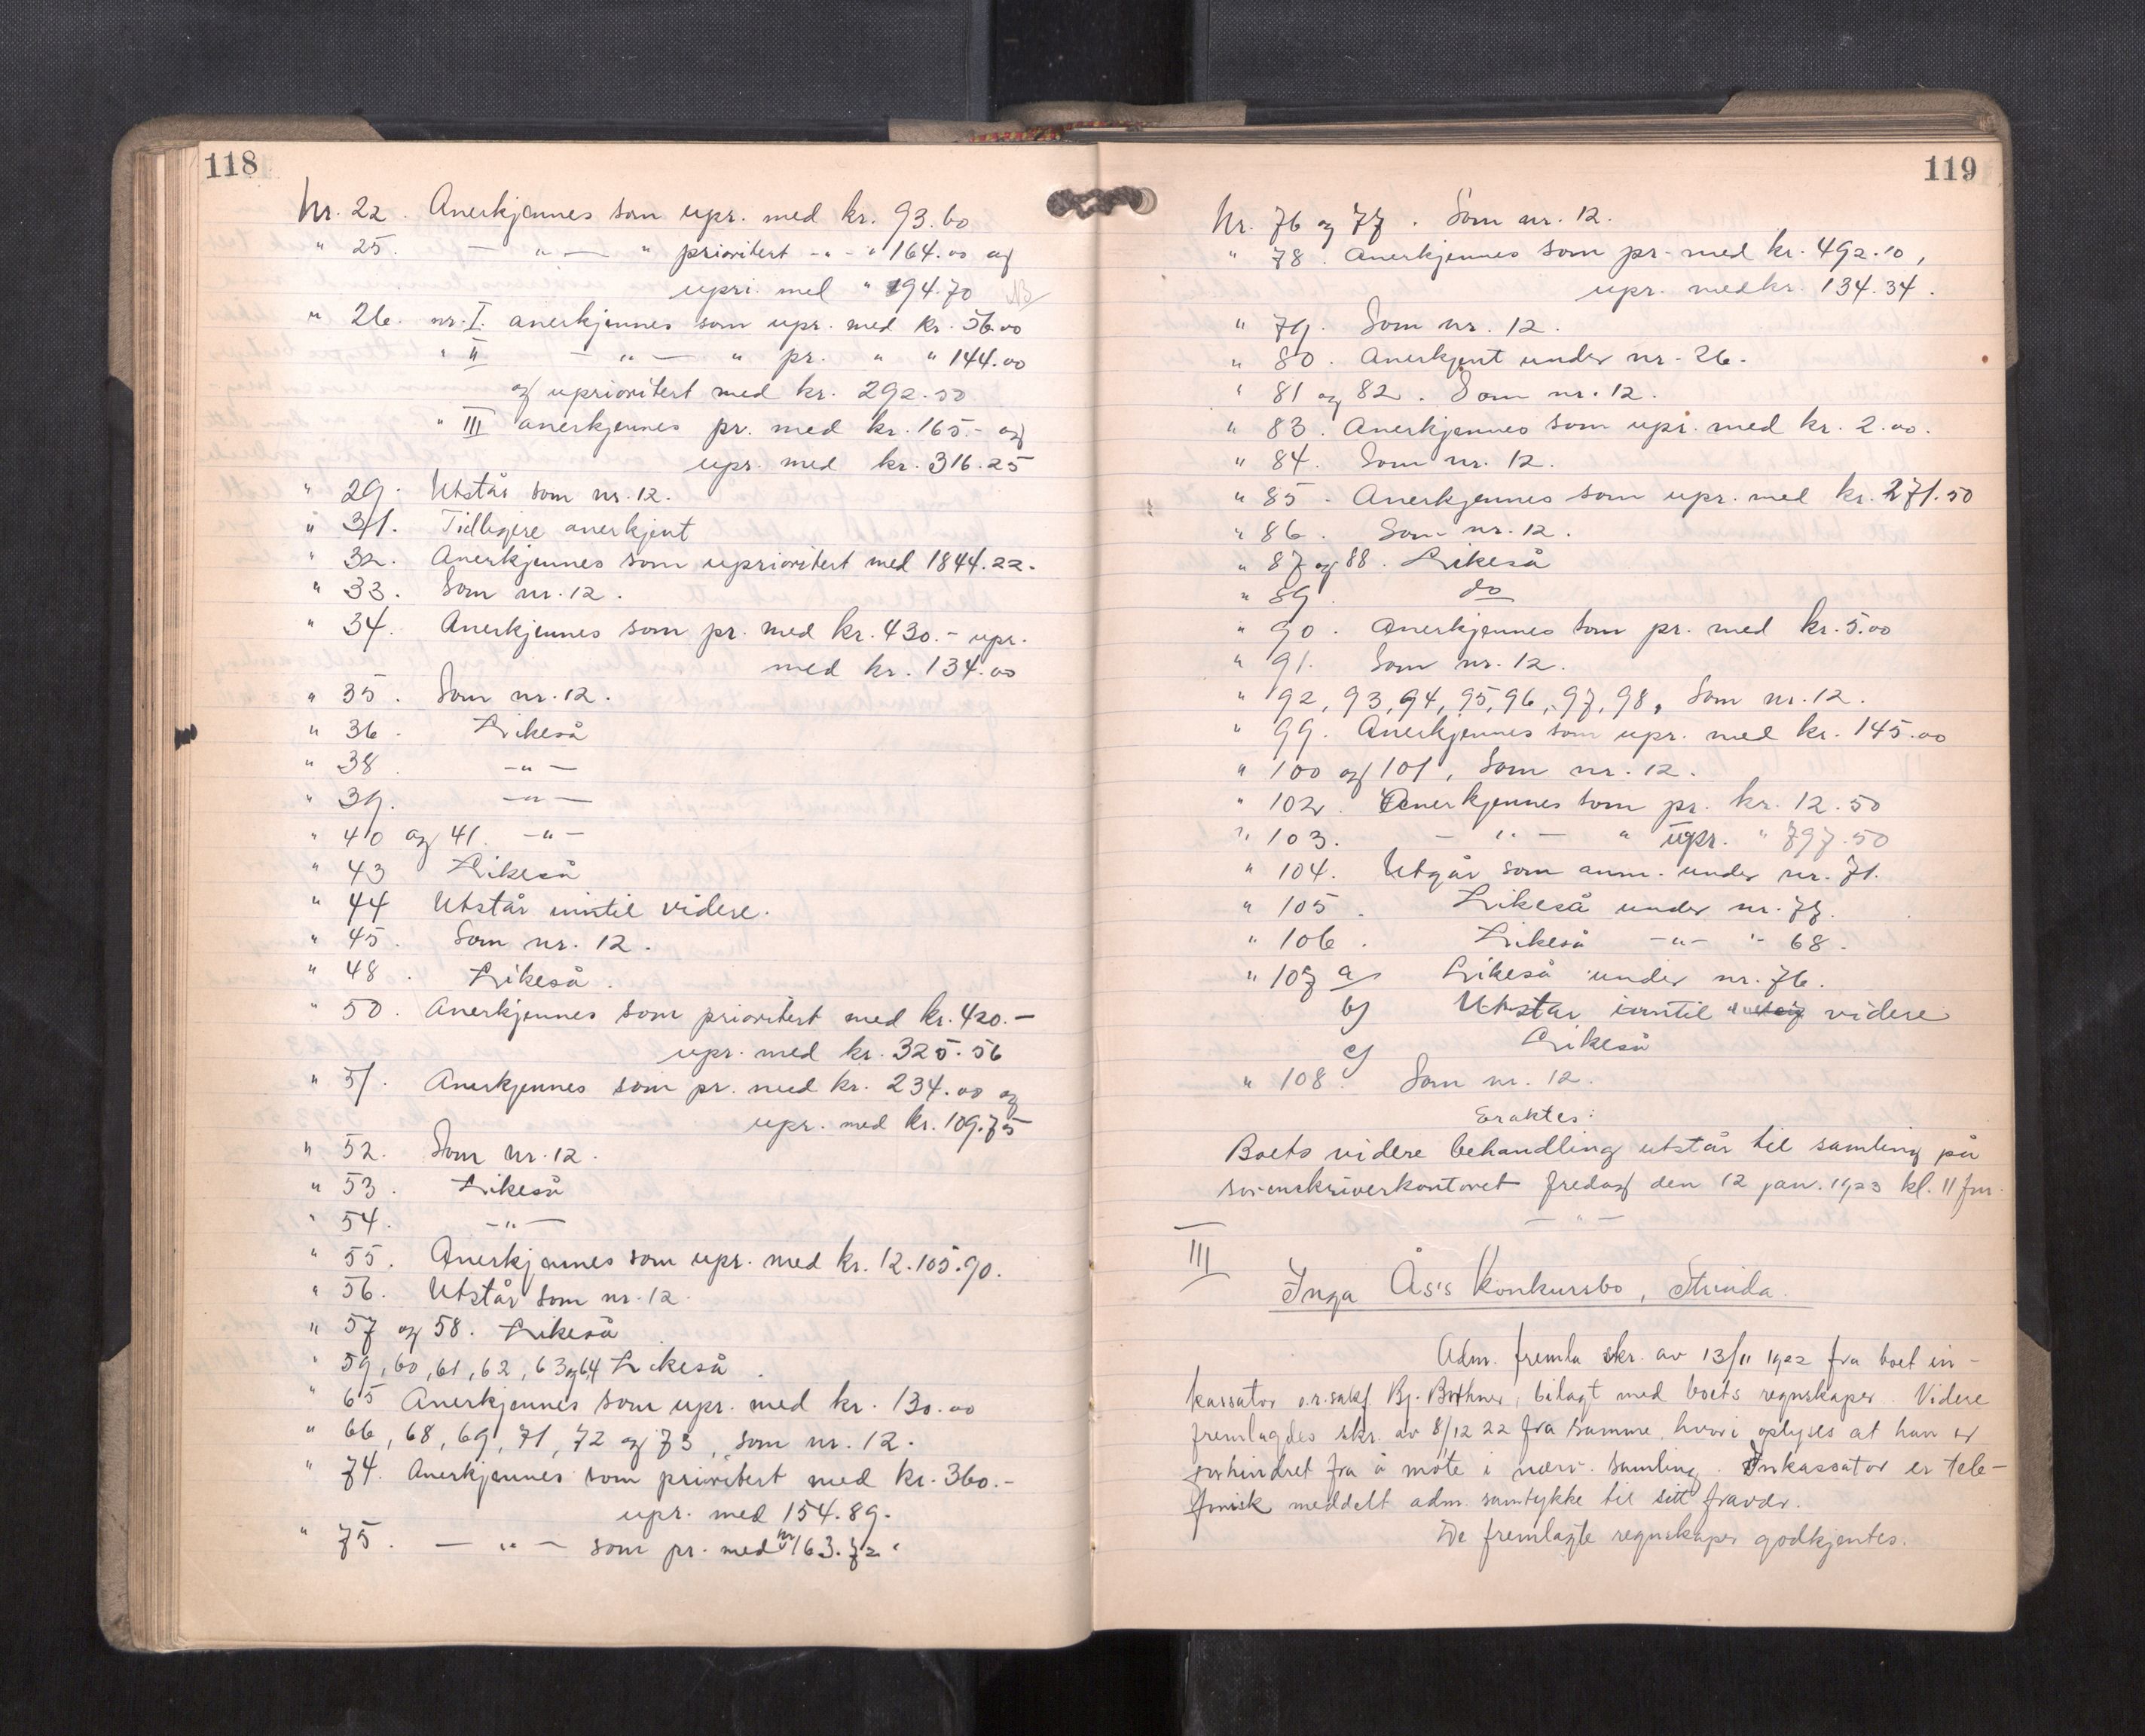 118
Nr. 22. Anerkjennes som upr. med kr. 93.60
" 25. — " — " prioritert - " - " 164.00 og
upri. med " 194.70 NB
" 26. nr. I. anerkjennes som upr. med kr. 56.00
" II — " — " pr. " " 144.00
og uprioritert med kr. 292.50
" III anerkjennes pr. med kr. 165.- og
upr. med kr. 316.25
" 29. Utstår som nr. 12.
" 31. Tidligere anerkjent
" 32. Anerkjennes som uprioritert med 1844.22.
" 33. Som nr. 12.
" 34. Anerkjennes som pr. med kr. 430.- upr.
med kr. 134.00
" 35. Som nr. 12.
" 36. Likeså
" 38. - " -
" 39. - " -
" 40 og 41. - " -
" 43 Likeså
" 44 Utstår inntil videre.
" 45. Som nr. 12.
" 48. Likeså.
" 50. Anerkjennes som prioritert med kr. 420.-
upr. med kr. 325.56
" 51. Anerkjennes som pr. med kr. 234.00 og
upr. med kr. 109.75
" 52. Som nr. 12.
" 53. Likeså
" 54. - " -
" 55. Anerkjennes som upr. med kr. 12.105.90.
" 56. Utstår som nr. 12.
" 57 og 58. Likeså
" 59, 60, 61, 62, 63 og 64 Likeså.
" 65 Anerkjennes som upr. med kr. 130.00
" 66, 68, 69, 71, 72 og 73, som nr. 12.
" 74. Anerkjennes som prioritert med kr. 360.-
upr. med 154.89.
" 75. — " — som pr. med kr 163.72.
119
Nr. 76 og 77. Som nr. 12.
" 78. Anerkjennes som pr. med kr. 492.10,
upr. med kr. 134.34.
" 79. Som nr. 12.
" 80. Anerkjent under nr. 26.
" 81 og 82. Som nr. 12.
" 83. Anerkjennes som upr. med kr. 2.00.
" 84. Som nr. 12.
" 85. Anerkjennes som upr. med kr. 271.50
" 86. Som nr. 12.
" 87 og 88. Likeså
" 89. do
" 90. Anerkjennes som pr. med kr. 5.00
" 91. Som nr. 12.
" 92, 93, 94, 95, 96, 97, 98, Som nr. 12.
" 99. Anerkjennes som upr. med kr. 145.00
" 100 og 101, Som nr. 12.
" 102. Anerkjennes som pr. kr. 12.50
" 103. — " — " upr. " 797.50
" 104. Utgår som anm. under nr. 71.
" 105. Likeså under nr. 77.
" 106. Likeså - " - " 68.
" 107 a) Likeså under nr. 76.
b) Utstår inntil videre
c) Likeså
" 108. Som nr. 12.
Eraktes:
Boets videre behandling utstår til samling på
sorenskriverkontoret fredag den 12 jan. 1923 kl. 11 fm.
- " -
III
Inga Ås's konkursbo, Strinda.
Adm. fremla skr. av 13/11 1922 fra boet in-
kassator o.r.sakf. Bj. Bothner, bilagt med boets regnskaper. Videre
fremlagdes skr. av 8/12 22 fra samme, hvori oplyses at han er
forhindret fra å møte i nærv. samling. Inkassator er tele-
fonisk meddelt adm. samtykke til sitt fravær.
De fremlagte regnskaper godkjentes.